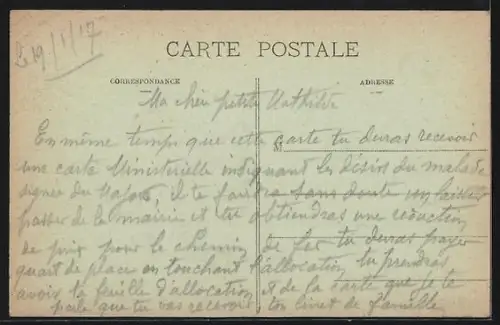 Le 19/1/17
CARTE POSTALE
CORRESPONDANCE
ADRESSE
Ma chère petite Mathilde
En même temps que cette carte tu devras recevoir
une carte Ministerielle indiquant les désirs du malade
signer du Major, il te faudra sans doute
passer de la mairie et tu obtiendras une réduction
de prix pour le chemin de fer tu devras payer
quart de place en touchant l'allocation tu prendras
avois ta feuille d'allocation et de la carte que je te
parle que tu vas recevoir ton livret de famille